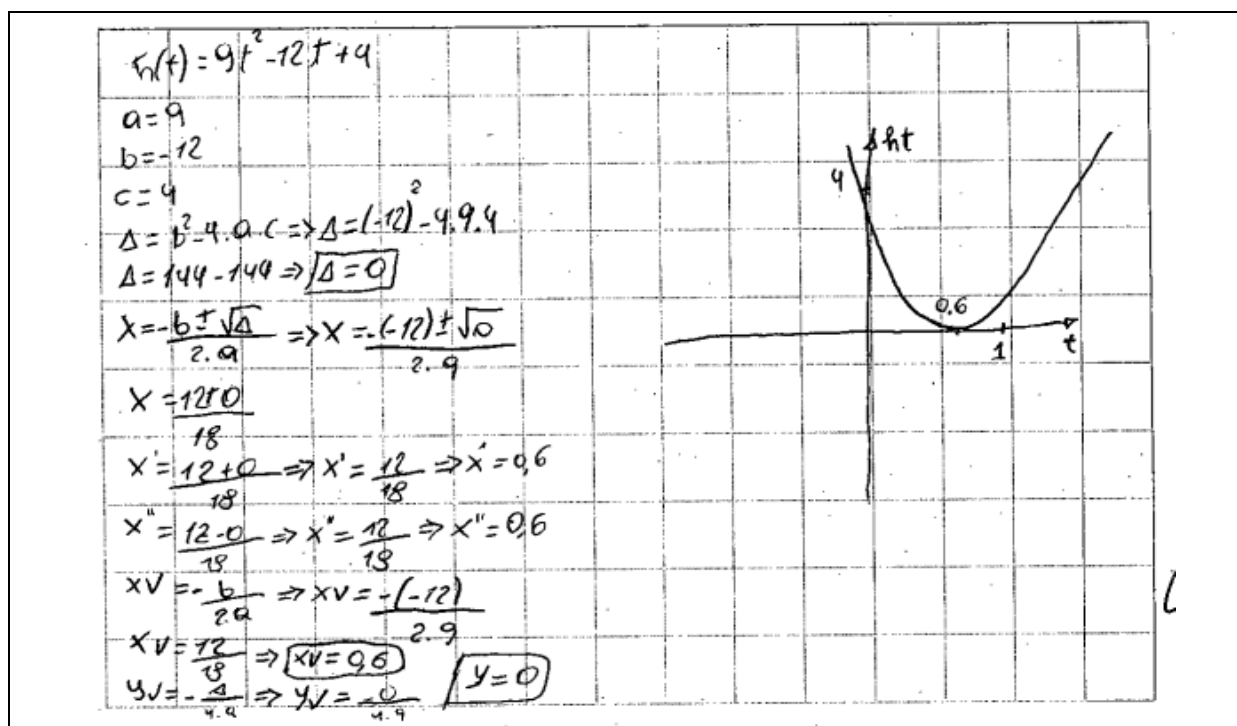 h(t) = 9t² - 12t + 4
a = 9
b = -12
c = 4
Δ = b² - 4.a.c => Δ = (-12)² - 4.9.4
Δ = 144 - 144 => Δ = 0
X = -b ± √Δ / 2.a => X = -(-12) ± √0 / 2.9
X = 12 ± 0 / 18
X' = 12 + 0 / 18 => X' = 12 / 18 => X' = 0,6
X'' = 12 - 0 / 18 => X'' = 12 / 18 => X'' = 0,6
XV = - b / 2.a => XV = -(-12) / 2.9
XV = 12 / 18 => XV = 0,6
YV = - Δ / 4.a => YV = -0 / 4.9 Y = 0
ht
4
0.6
1
t